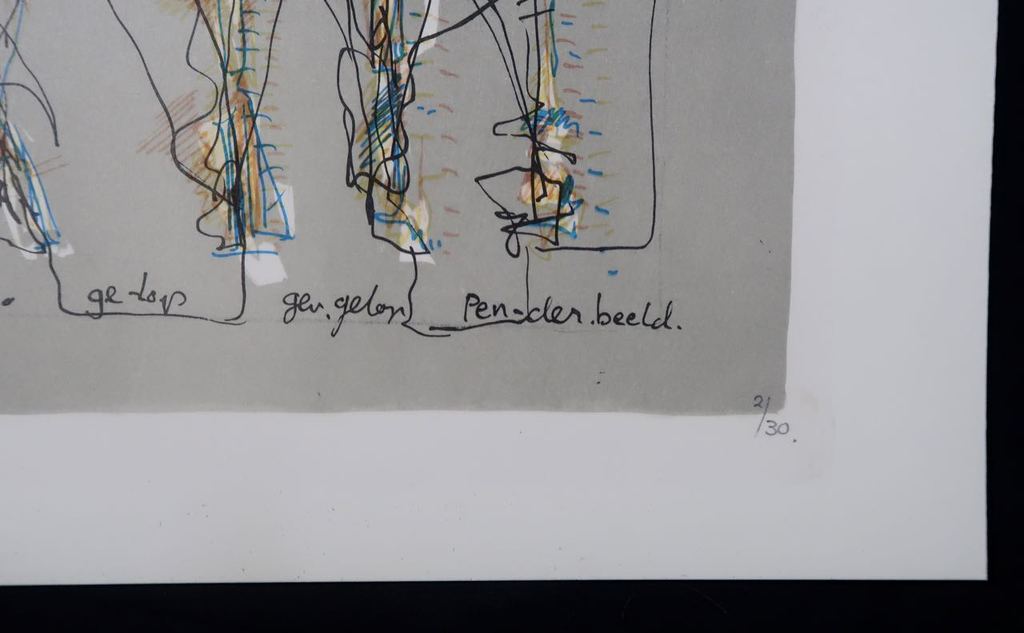 ge-lop gev.gelop Pen-der.beeld.
2/30.